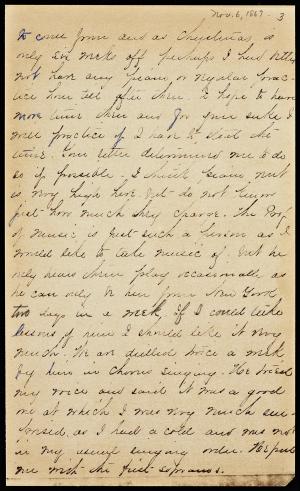 Nov. 6, 1867 - 3
to come from and as Christmas is
only six weeks off perhaps I had better
not have any piano, or regular prac-
tice hour till after then. I hope to have
more time then and for your sake I
will practice if I have to steal the
time. Your letter determined me to do
so if possible. I think piano rent
is very high here. but do not know
just how much they charge. The Prof
of Music is just such a person as I
would like to take music of. but he
only hears them play occasionally as
he can only be here
two days in a week, if I could take
lessons of him I should like it very
much. We are drilled twice a week
by him in chorus singing. He tried
my voice and said it was a good
one at which I was very much sur-
prised. as I had a cold and was not
in my usual singing order. He put
me with the first sopranos.